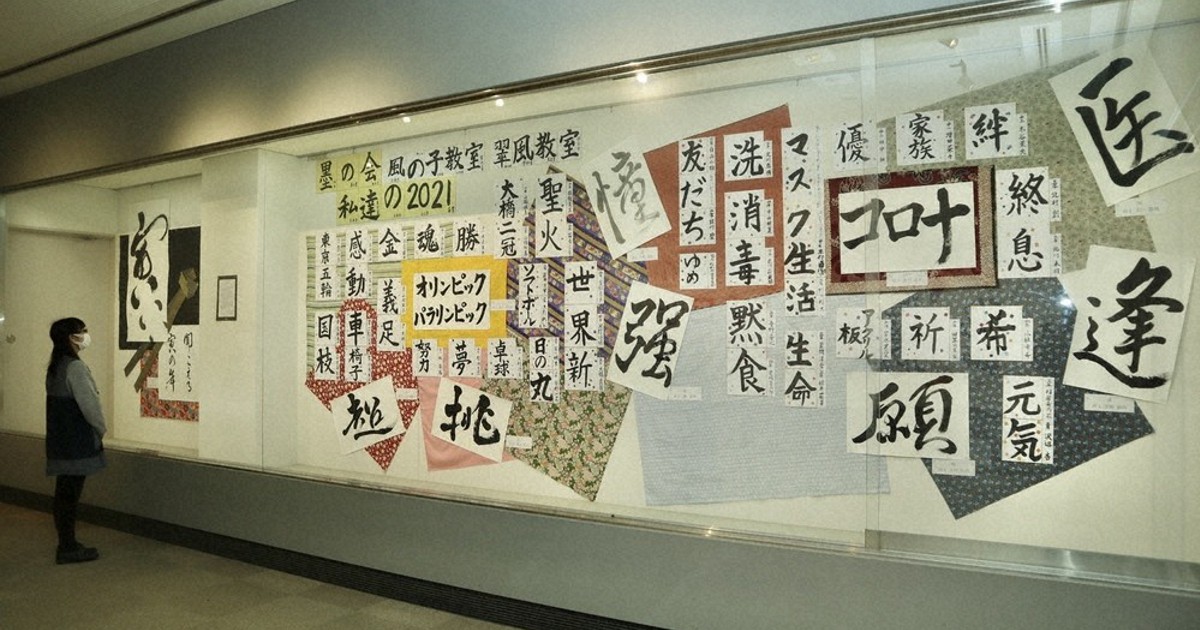 墨の会 風の子教室 翠風教室
私達の2021
東京五輪
国技
感動
車椅子
金
義足
魂
勝
大橋二冠
聖火
オリンピック
パラリンピック
ソフトボール
世界新
努力
夢
卓球
日の丸
超
挑
憧
強
友だち
ゆめ
洗
消毒
黙食
マスク生活
生命
優
家族
絆
コロナ
終息
医
逢
アクリル板
祈
希
願
元気